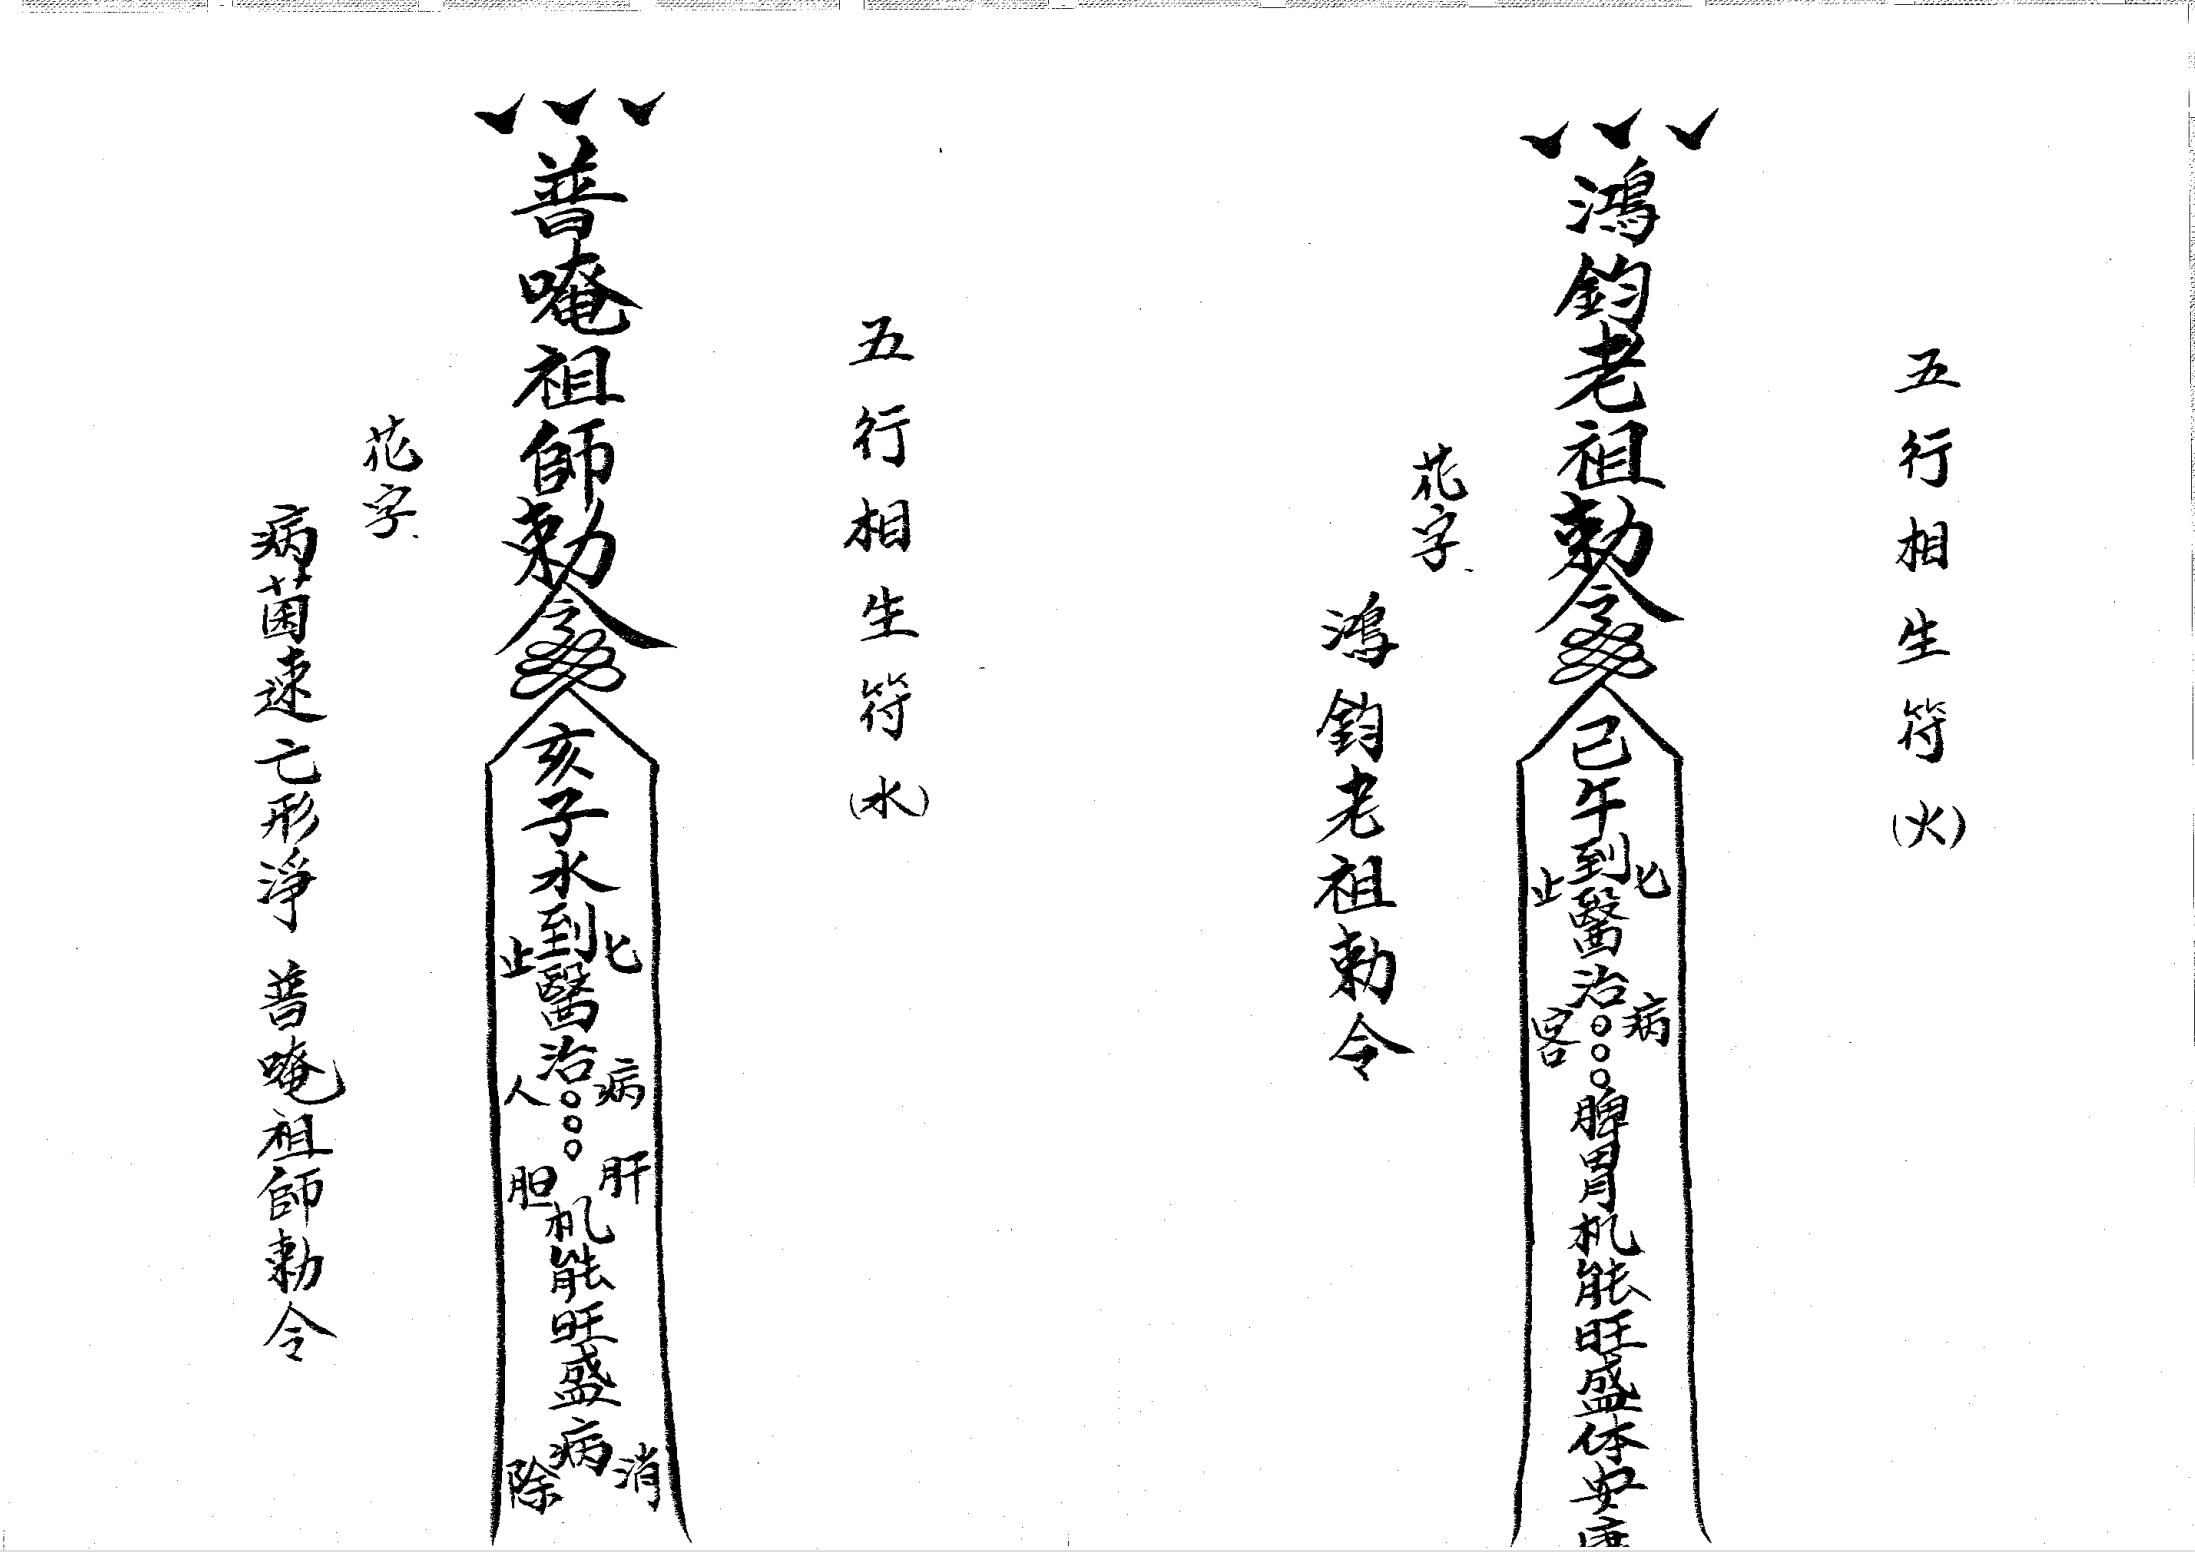 五行相生符(火)
鴻鈞老祖勅令
己午到醫治○○○脾胃机能旺盛体安康
匕
止
病
客
花字
鴻鈞老祖勅令
五行相生符(水)
普唵祖師勅令
亥子水到醫治○○○机能旺盛病
匕
止
病
人
肝
胆
消
除
花字
病菌速亡形淨 普唵祖師勅令